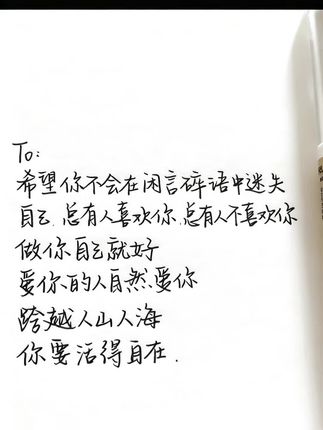 To:
希望你不会在闲言碎语中迷失
自己.总有人喜欢你.总有人不喜欢你
做你自己就好
爱你的人自然爱你
跨越人山人海
你要活得自在.